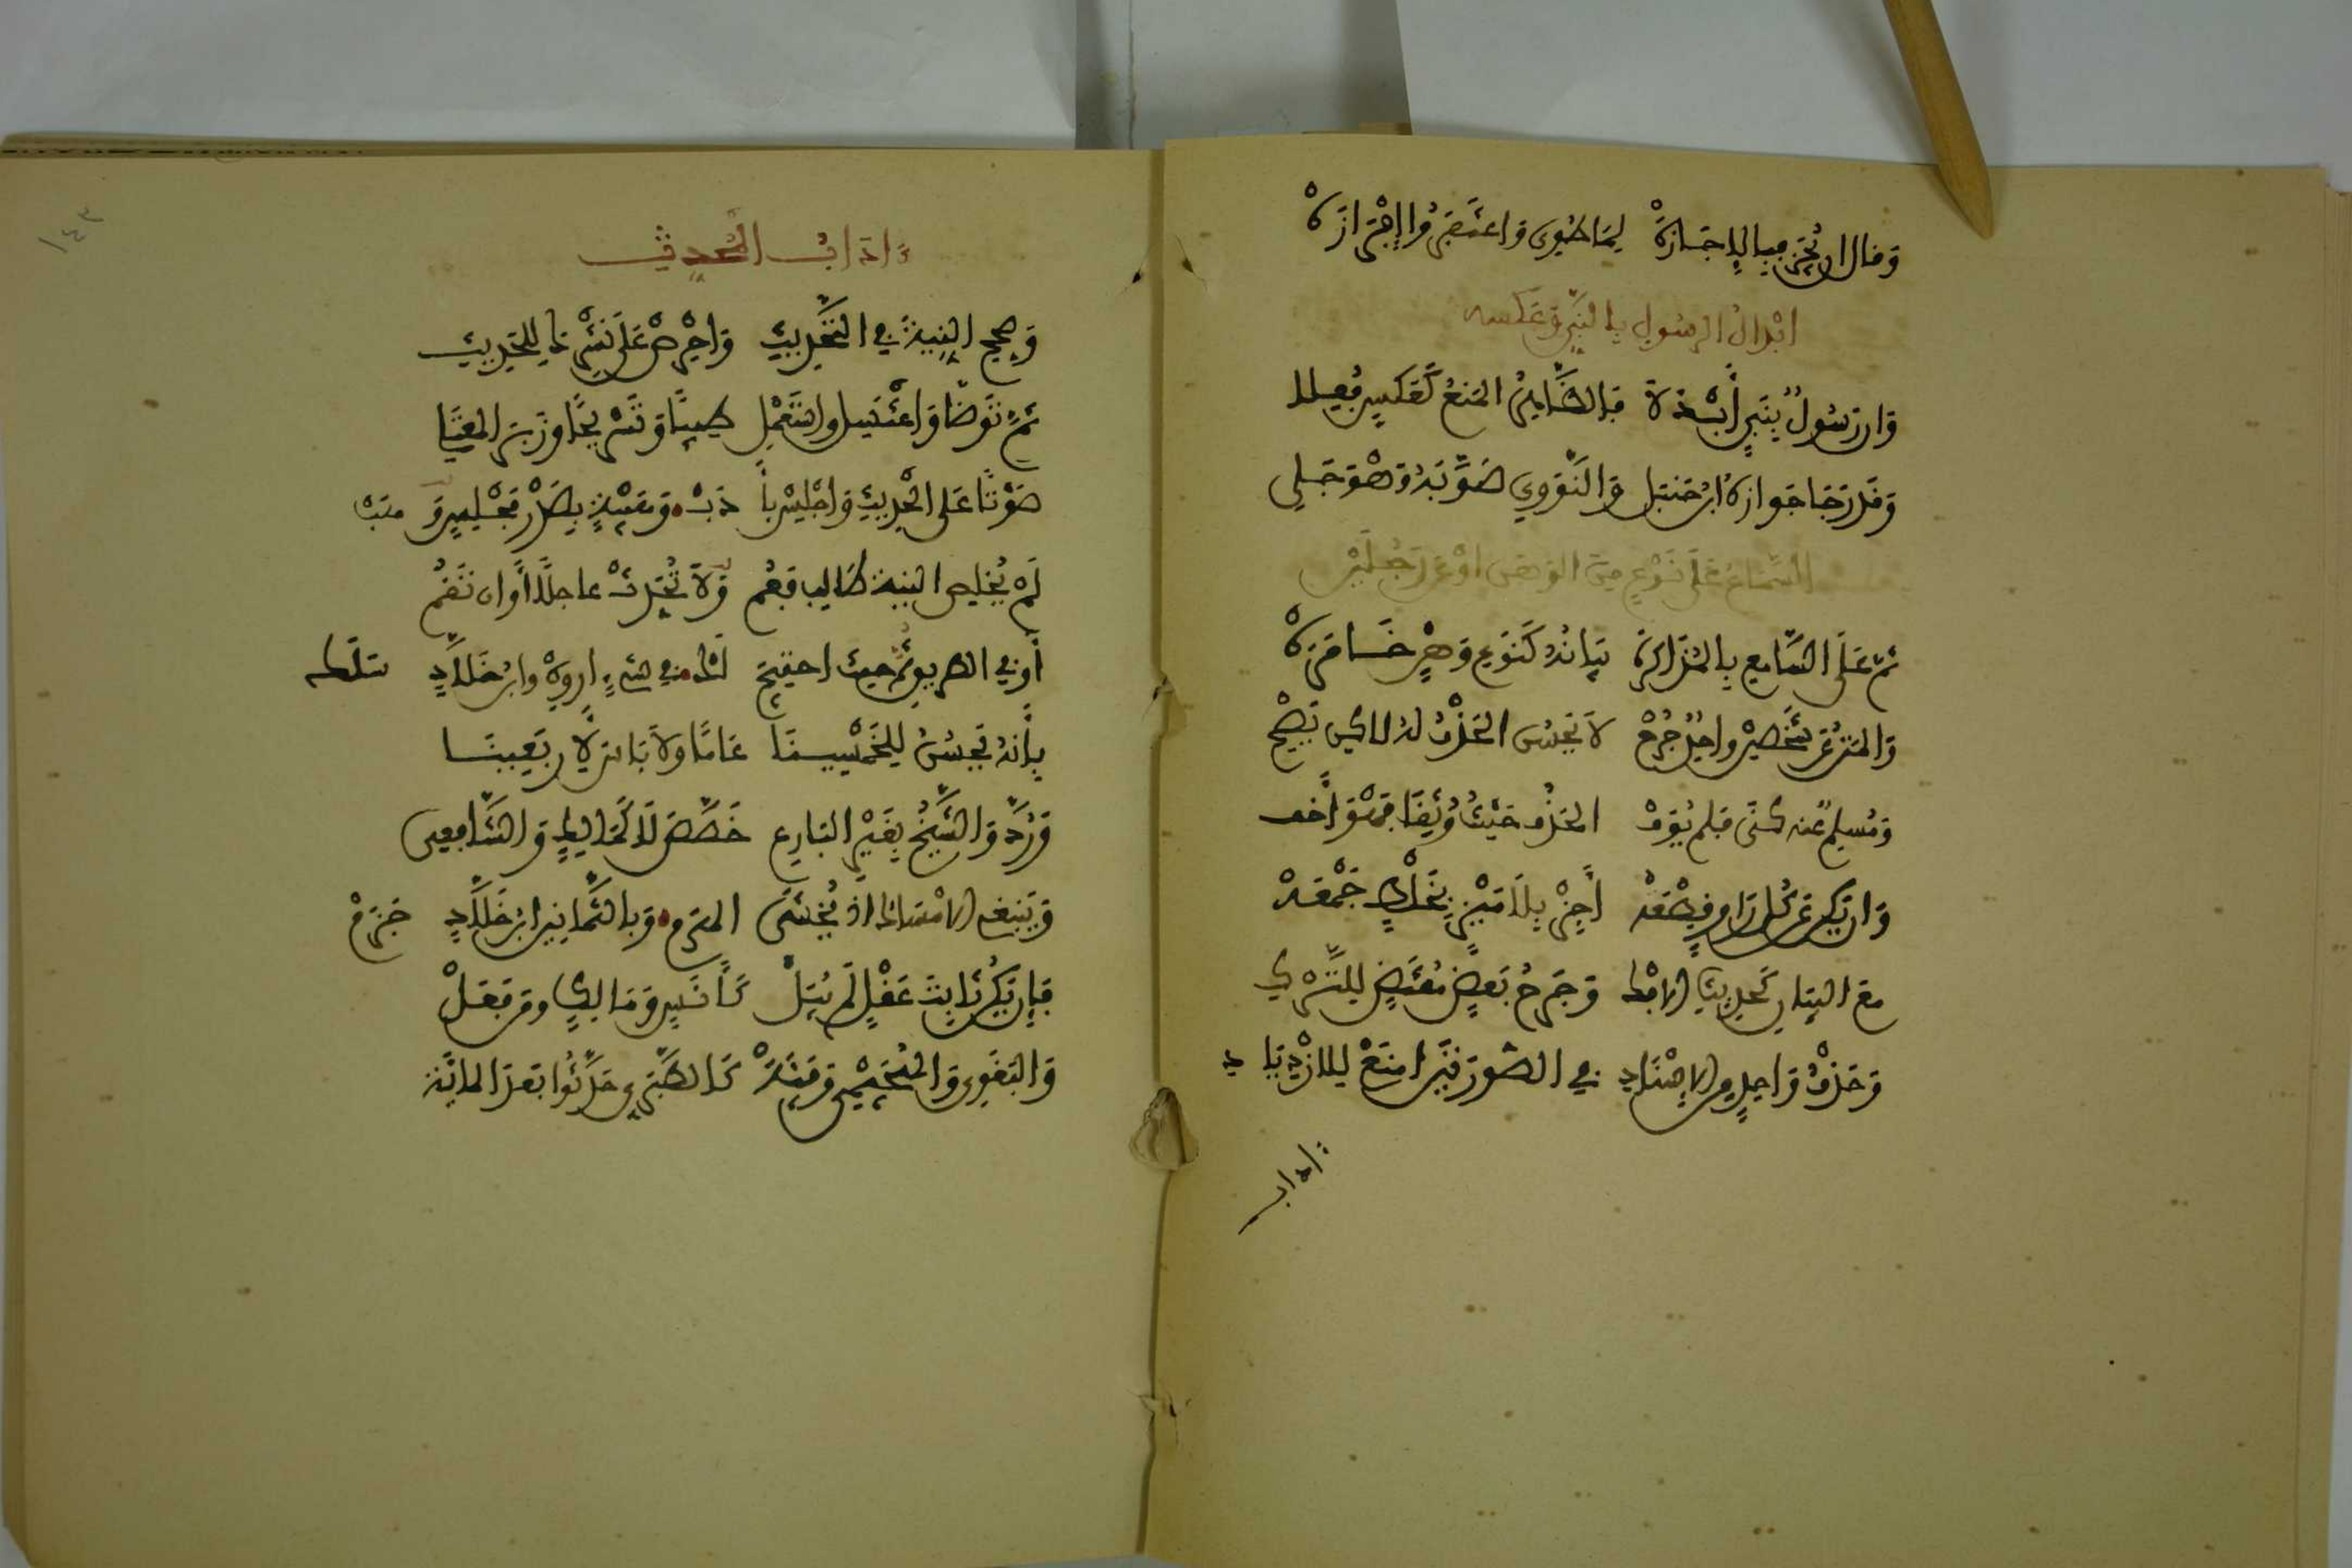 وقال ان يجز فبالاجازه لما طوى واغتفروا إفرازه
ابدال الرسول بالنبي وعكسه
وان رسول بنبي أبدلا فالظاهر المنع كعكس فعلا
وقد رجا جوازه ابن حنبل والنووي صوبه وهو جلي
السماع على نوع من الوهن او عن رجلين
ثم على السامع بالمذاكره بيانه كنوع وهن خامره
والمتن عن شخصين واحد جرح لا يحسن الحذف له لاكن يصح
ومسلم عنه كنى فلم يوف الحذف حيث وثقا فهو أخف
وان يكن عن كل راو قطعه أجز بلا ميز بخلط جمعه
مع البيان كحديث الافك وجرح بعض مقتض للترك
وحذف واحد من الاسناد في الصورتين امنع للازدياد
ءاداب
١٤٣
ءاداب المحدث
وصحح النية في التحديث واحرص على نشرك للحديث
ثم توضأ واغتسل واستعمل طيبا وتسريحا وزبر المعتلي
صوتا على الحديث واجلس بأدب وهيبة بصدر مجلس وهب
لم يخلص النية طالب فعم ولا تحدث عاجلا أو ان تقم
أو في الطريق ثم حيث احتيج لك في شيء اروه وابن خلاد سلك
بأنه يحسن للخمسينا عاما ولا باس لأربعينا
ورد والشيخ بغير البارع خصص لا كمالك والشافعي
وينبغي الامساك اذ يخشى الهرم وبالثمانين ابن خلاد جزم
فإن يكن ثابت عقل لم يبل كأنس ومالك ومن فعل
والبغوي والهجيمي وفئه كالطبري حدثوا بعد المائه